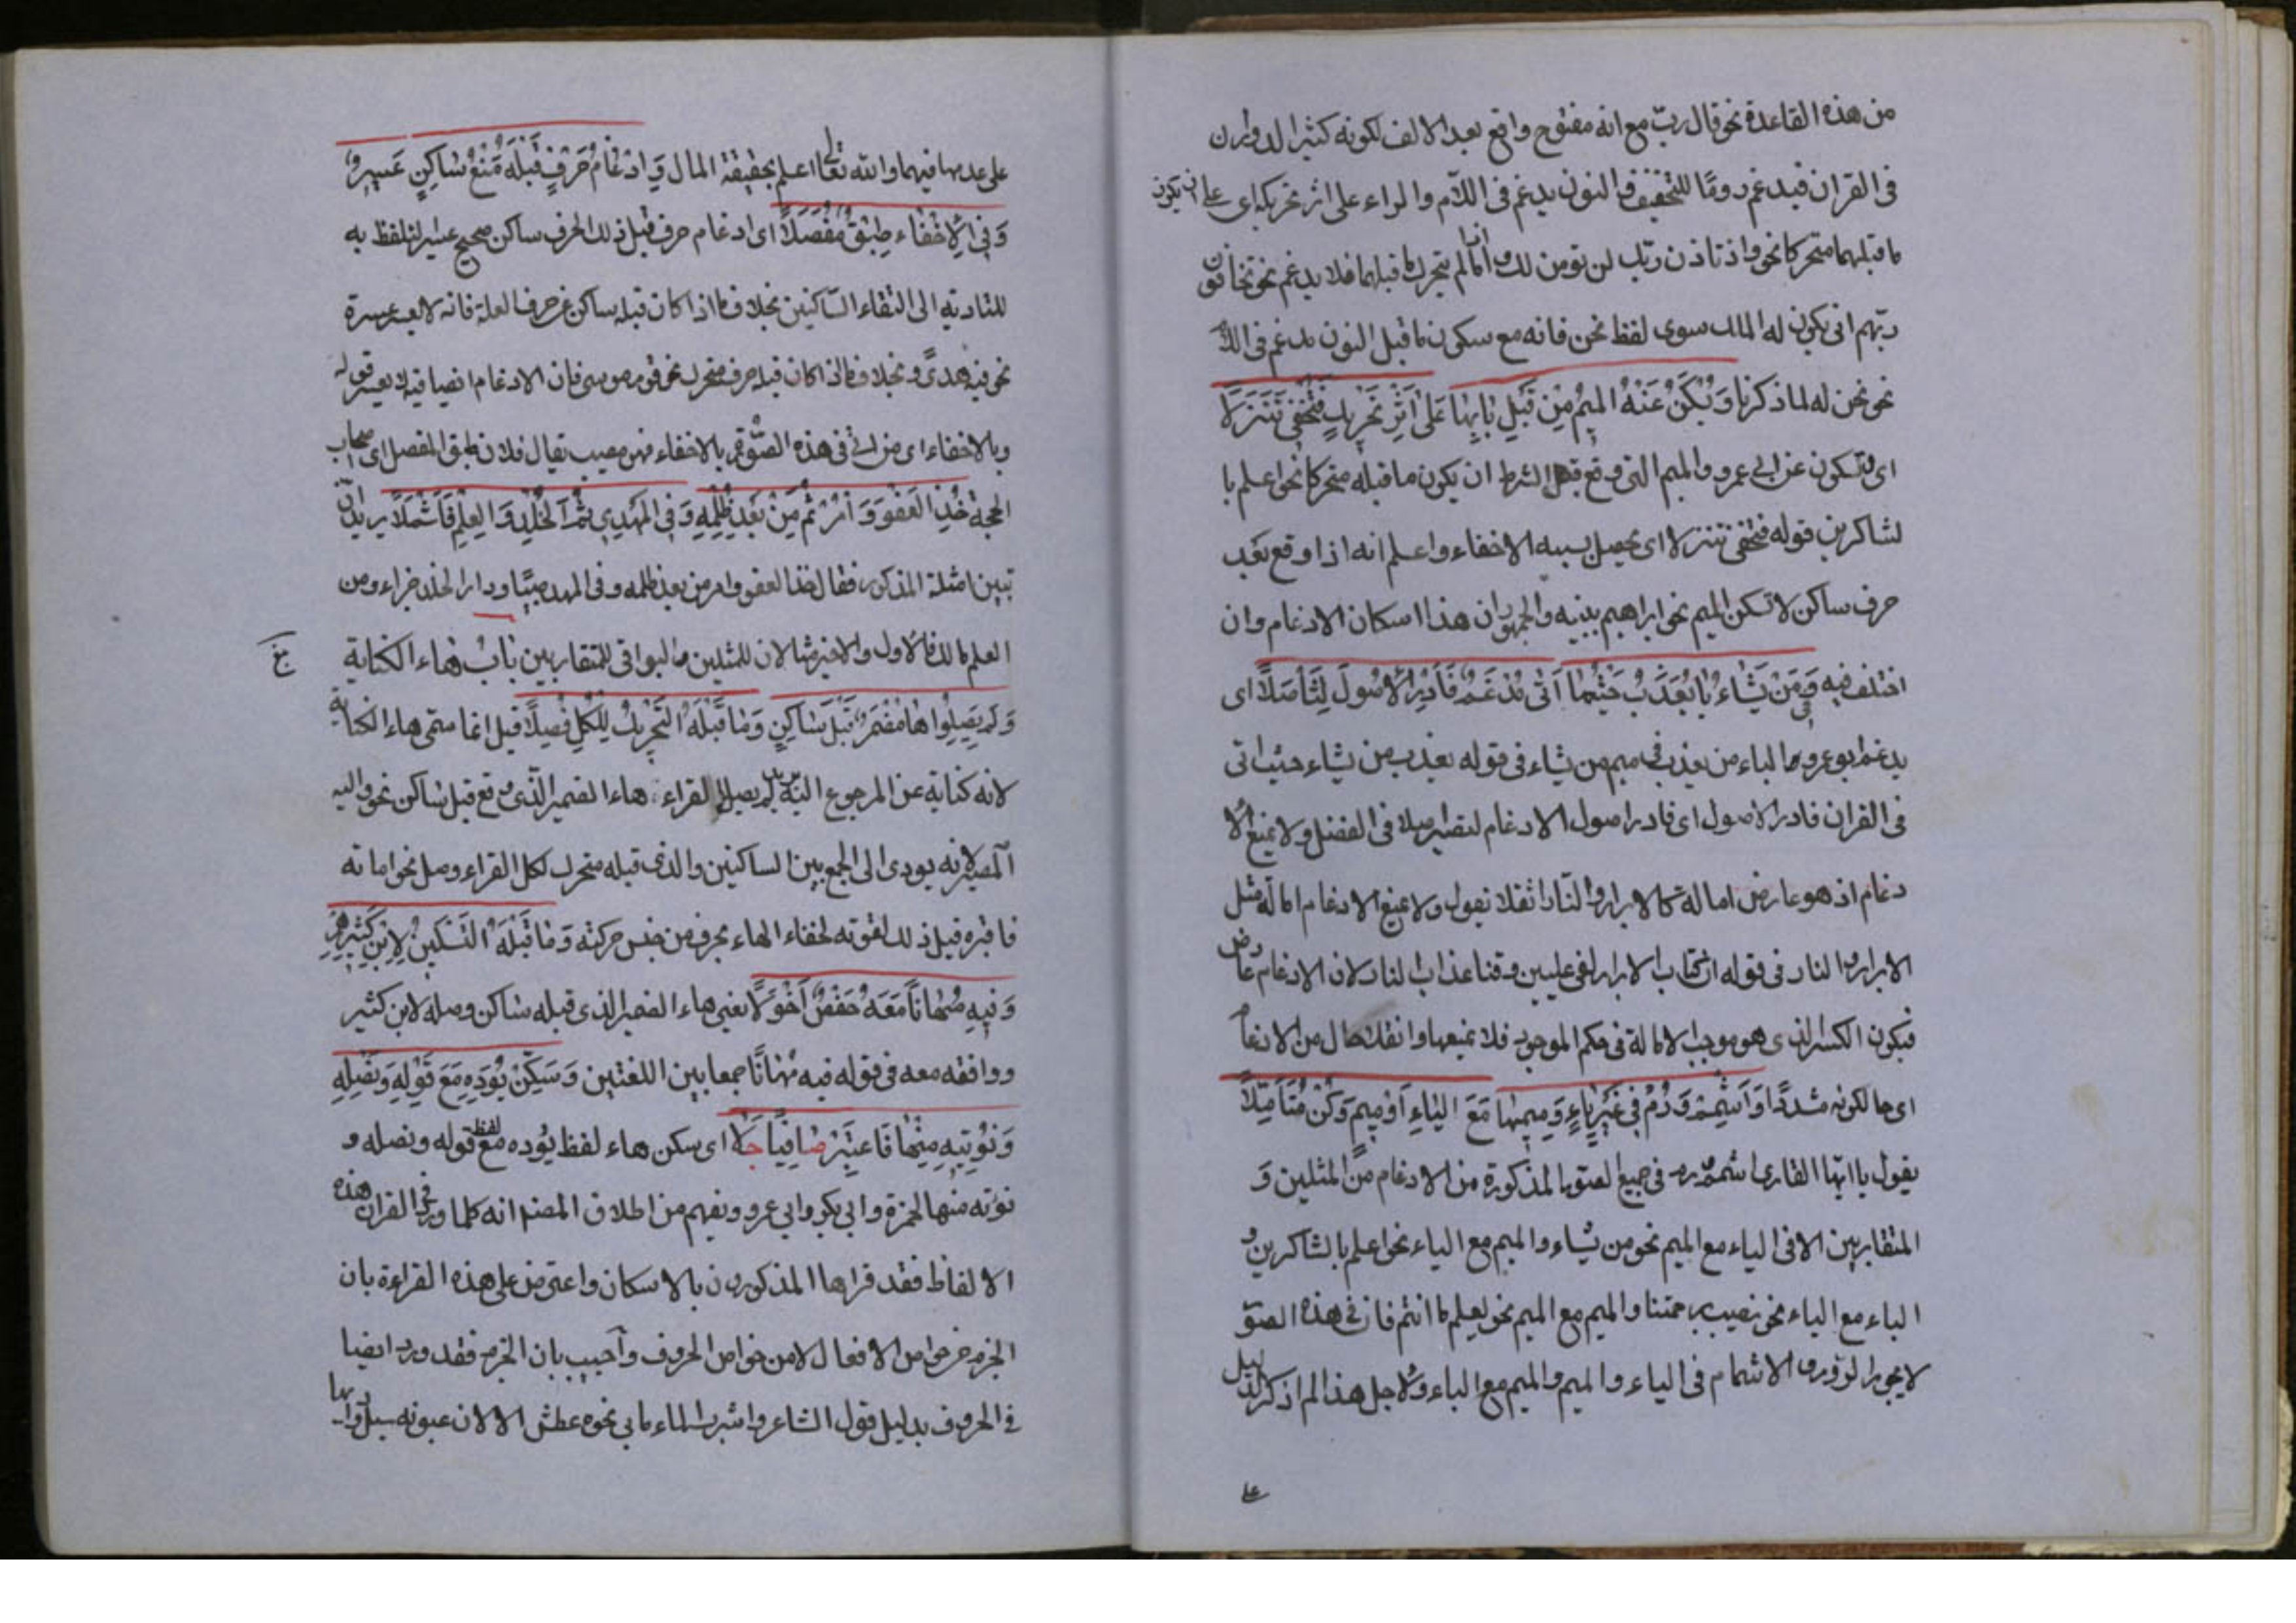 من هذه القاعدة نحو قال ربّ مع انه مفتوح واقع بعد الالف لكونه كثير الدوران
فى القران فيدغم روما للتخفيف والنون يدغم فى اللام والراء على اثر تحريك اى على ان يكون
ما قبلهما متحركا نحو واذ تاذن ربك لن نومن لك واما اذا لم يتحرك ما قبلهما فلا يدغم نحو يخافون
ربّهم انى يكون له الملك سوى لفظ نحن فانه مع سكون ما قبل النون يدغم فى اللام
نحو نحن له لما ذكرنا وَتُسْكَنُ عَنْهُ المِيمُ مِنْ قَبْلِ بَائِهَا عَلَى اَثْرِ تَحْرِيكٍ فَتَخْفَى تَنَزُّلَا
اى وتسكون عن ابى عمرو الميم التى وقع قبل الشرط ان يكون ما قبله متحركا نحو اعلم با
لشاكرين قوله فتخفى تنزلا اى يحصل بسببه الاخفاء واعلم انه اذا وقع بعد
حرف ساكن لا تسكن الميم نحو ابراهيم بنيه والجمهور ان هذا اسكان الادغام وان
اختلف فيه وَفِى مَنْ يَشَاءُ بَا يُعَذِّبُ حَيْثُمَا اَتَى مُدْغَمٌ فَادْرِ الْاُصُولَ لِتَأْصُلَا اى
يدغم ابو عمرو الباء من يعذب فى ميم من يشاء فى قوله يعذب من يشاء حيث اتى
فى القران فادر الاصول اى فادر اصول الادغام لتصير اصلا فى الفضل ولا يمنع الا
دغام اذ هو عارض امالة كالابرار والنار اثقلا يقول ولا يمنع الادغام امالة مثل
الابرار والنار فى قوله ان كتاب الابرار لفى عليين وقنا عذاب النار لان الادغام عارض
فيكون الكسر الذى هو موجب الامالة فى حكم الموجود فلا يمنعها واثقلا حال من الادغام
اى حالكونه مشددا وَاَشْمِمْ وَرُمْ فِى غَيْرِ بَاءٍ وَمِيمِهَا مَعَ الْبَاءِ اَوْ مِيمٍ وَكُنْ مُتَأَمِّلَا
يقول يا ايها القارى اشمم ورم فى جميع الصور المذكورة من الادغام من المثلين و
المتقاربين الا فى الباء مع الميم نحو من يشاء والميم مع الباء نحو اعلم بالشاكرين و
الباء مع الباء نحو نصيب برحمتنا والميم مع الميم نحو يعلم ما انتم فان فى هذه الصور
لا يجوز الروم والاشمام فى الباء والميم والميم مع الباء ولاجل هذا لم اذكر الدليل
على
على عدمها فيهما والله تعالى اعلم بحقيقة المال وَاِدْغَامُ حَرْفٍ قَبْلَهُ صَحَّ سَاكِنٌ عَسِيرٌ
وَفِى الْاِخْفَاءِ طَبَّقَ مَفْصِلَا اى ادغام حرف قبل ذلك الحرف ساكن صحيح عسير التلفظ به
للتاديه الى التقاء الساكنين بخلاف ما اذا كان قبله ساكن غير حرف العلة فانه لا يعسر
نحو فيه هدًى وبخلاف ما اذا كان قبله حرف متحرك نحو قوم موسى فان الادغام ايضا فيه لا يعسر قوله
وبالاخفاء اى من اتى فى هذه الصور بالاخفاء فهو مصيب يقال فلان طبق المفصل اى اصحاب
الحجة خُذِ الْعَفْوَ وَأْمُرْ ثُمَّ مِنْ بَعْدِ ظُلْمِهِ وَفِى الْمَهْدِ ثُمَّ الْخُلْدِ وَالْعِلْمِ فَاشْمُلَا يريد ان
تبين امثلة المذكور فقال خذ العفو وامر من بعد ظلمه وفى المهد صبيًا ودار الخلد جزاء ومن
العلم مالك فالاول والاخير مثالان للمثلين والبواقى للمتقاربين بَابُ هَاء الكناية
وَلَمْ يَصِلُوا هَا مُضْمَرٍ قَبْلَ سَاكِنٍ وَمَا قَبْلَهُ التَّحْرِيكُ لِلْكُلِّ وُصِّلَا قيل انما سمى هاء الكناية
لانه كناية عن المرجوع اليه لم يصل القراء هاء الضمير الذى وقع قبل ساكن نحو واليه
المصير لانه يودى الى الجمع بين الساكنين والذى قبله متحرك لكل القراء وصل نحو اماته
فاقبره قيل ذلك لقوته لخفاء الهاء بحرف من جنس حركته وَمَا قَبْلَهُ التَّسْكِينُ لِابْنِ كَثِيرِهِمْ
وَفِيهِ مُهَانًا مَعَهُ حَفْصٌ اَخُو وِلَا يعنى هاء الضمير الذى قبله ساكن وصله لابن كثير
ووافقه معه فى قوله فيه مهانًا جمعا بين اللغتين وَسَكِّنْ يُؤَدِّهْ مَعَ نُوَلِّهْ وَنُصْلِهِ
وَنُؤْتِهِ مِنْهَا فَاعْتَبِرْ صَافِيًا حَلَا اى سكن هاء لفظ يؤده مع لفظ نوله ونصله و
نؤته منها لحمزة وابى بكر وابى عمرو ويفهم من اطلاق المصنف انه كلما ورد فى القران هذه
الالفاظ فقد قراها المذكورون بالاسكان واعترض على هذه القراءة بان
الجزم من خواص الافعال لا من خواص الحروف وأجيب بان الجزم فقد ورد ايضا
فى الحروف بدليل قول الشاعر واشرب الماء ما بى نحوه عطش الا لان عيونه سيل واديها